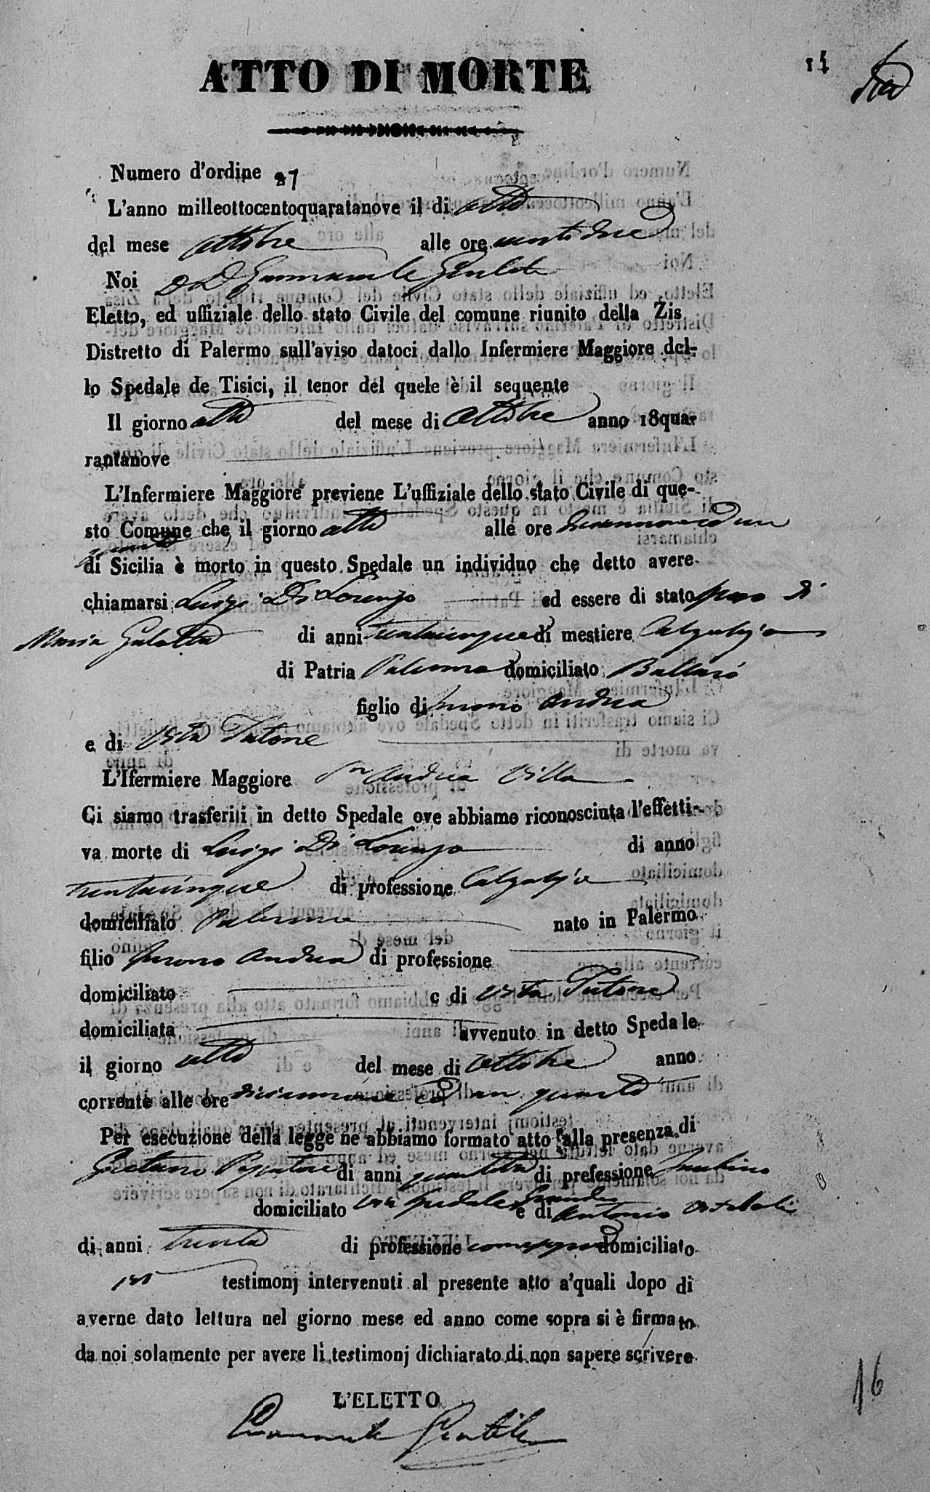 14
ATTO DI MORTE
Numero d'ordine 27
L'anno milleottocentoquaratanove il di otto
del mese ottobre alle ore ventidue
Noi D. Emmanuele Gentile
Eletto, ed uffiziale dello stato Civile del comune riunito della Zis
Distretto di Palermo sull'aviso datoci dallo Infermiere Maggiore del-
lo Spedale de Tisici, il tenor del quele è il sequente
Il giorno otto del mese di Ottobre anno 18quar
rantanove
L'Infermiere Maggiore previene L'uffiziale dello stato Civile di que-
sto Comune che il giorno otto alle ore diciannove ed un
quarto
di Sicilia è morto in questo Spedale un individuo che detto avere
chiamarsi Luigi Di Lorenzo ed essere di stato sposo di
Maria Galatà di anni trentacinque di mestiere Calzolajo
di Patria Palermo domiciliato Ballarò
figlio di Andrea
e di Vita Tutone
L'Ifermiere Maggiore Andrea Villa
Ci siamo trasferiti in detto Spedale ove abbiamo riconosciuta l'effetti-
va morte di Luigi Di Lorenzo di anno
trentacinque di professione Calzolajo
domiciliato Palermo nato in Palermo
filio Andrea di professione
domiciliato e di Vita Tutone
domiciliata avvenuto in detto Spedale
il giorno otto del mese di Ottobre anno
corrente alle ore diciannove ed un quarto
Per esecuzione della legge ne abbiamo formato atto alla presenza di
Gaetano di anni quaranta di prefessione
domiciliato via Spedale Grande e di Antonio
di anni trenta di professione domiciliato
ivi testimonj intervenuti al presente atto a'quali dopo di
averne dato lettura nel giorno mese ed anno come sopra si è firmato
da noi solamente per avere li testimonj dichiarato di non sapere scrivere
L'ELETTO
Emmanuele Gentile
16